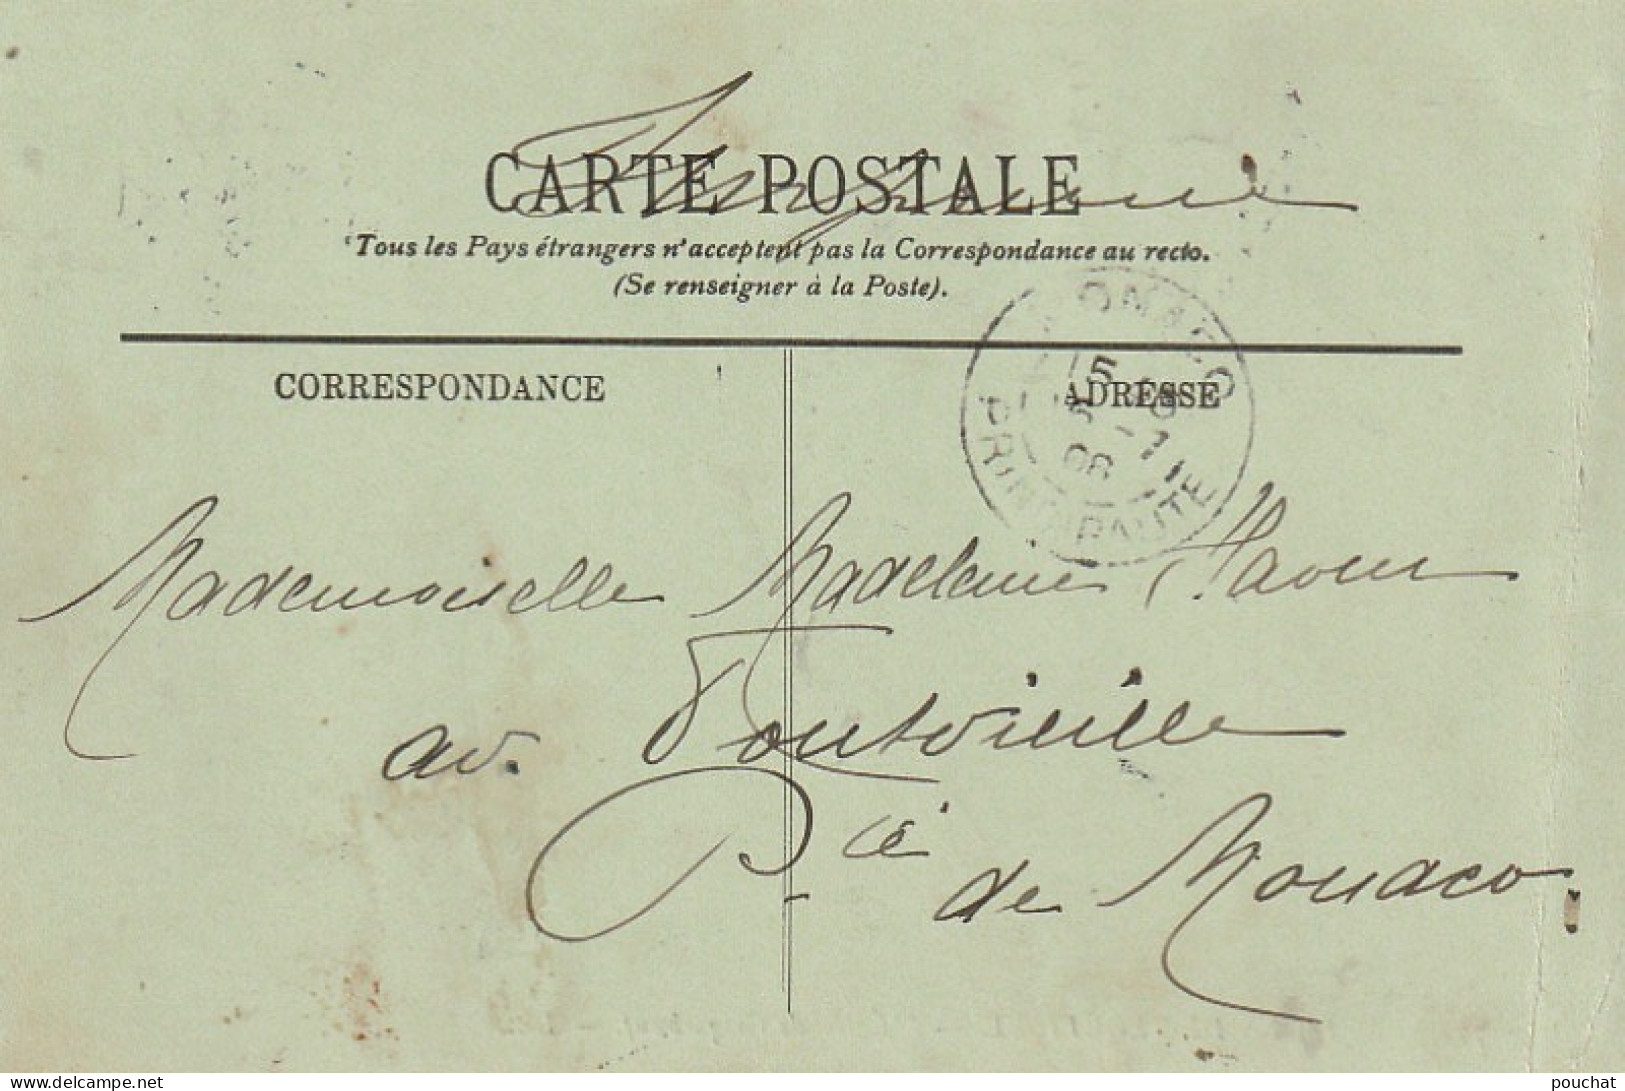 CARTE POSTALE
Tous les Pays étrangers n'acceptent pas la Correspondance au recto.
(Se renseigner à la Poste).
CORRESPONDANCE
ADRESSE
MONACO
PRINCIPAUTE
Mademoiselle Madeleine
av. Fontvieille
Pté de Monaco.
www.delcampe.net
pouchat